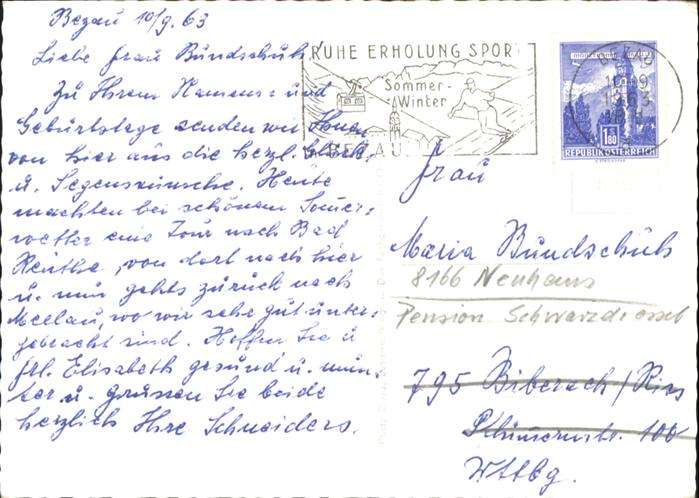 Bezau 10/9. 63
Liebe Frau Bundschuh!
Zu Ihrem Namens- und
Geburtstage senden wir Ihnen
von hier aus die herzl. Glück-
u. Segenswünsche. Heute
machten bei schönem Sommer-
wetter eine Tour nach Bad
Reuthe, von dort nach hier
u. nun gehts zurück nach
Mellau, wo wir sehr gut unter-
gebracht sind. Hoffen Sie u
Frl. Elisabeth gesund u. mun-
ter u. grüssen Sie beide
herzlich Ihre Schneiders.
RUHE ERHOLUNG SPORT
Sommer-
Winter
BEZAU
1963
S 1.80
REPUBLIK ÖSTERREICH
Frau
Maria Bundschuh
8166 Neuhaus
Pension Schwarzdrossel
795 Biberach/Riss
100
Wttbg.